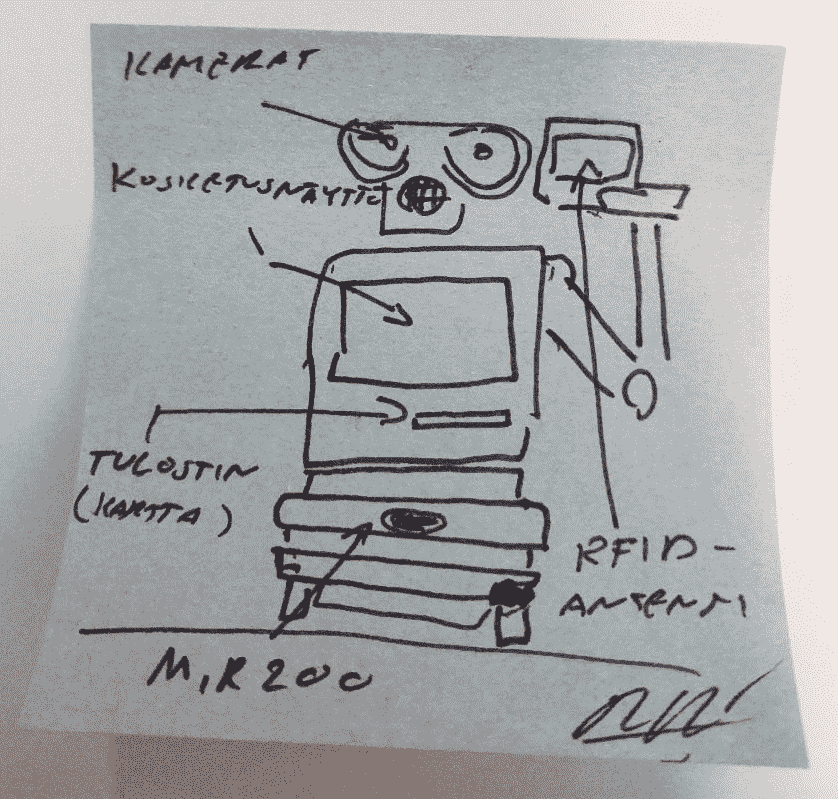 KAMERAT
KOSKETUSNÄYTTÖ
TULOSTIN
(KARTTA)
RFID-
ANTENNI
MIR200